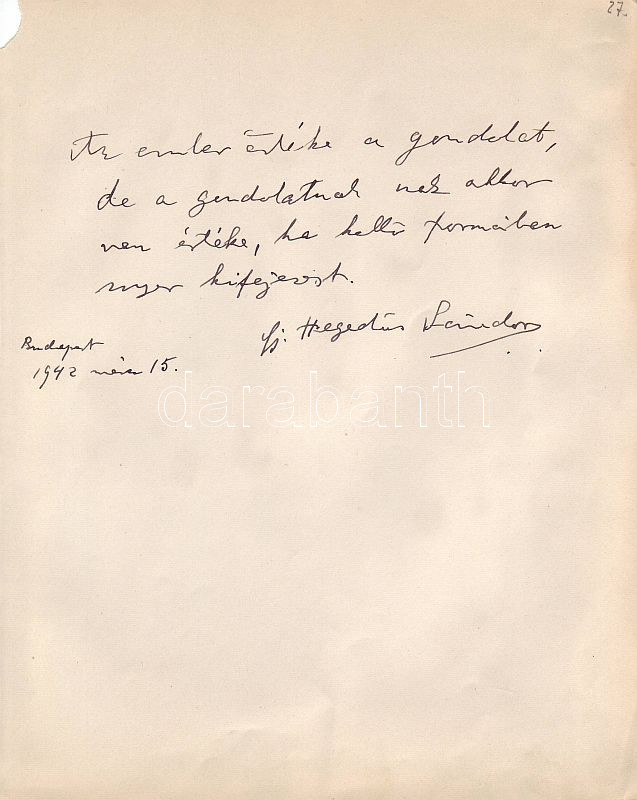 27.
Az ember értéke a gondolat,
de a gondolatnak csak akkor
van értéke, ha kellő formában
nyer kifejezést.
ifj. Hegedüs Sándor
Budapest
1942 márc 15.
darabanth